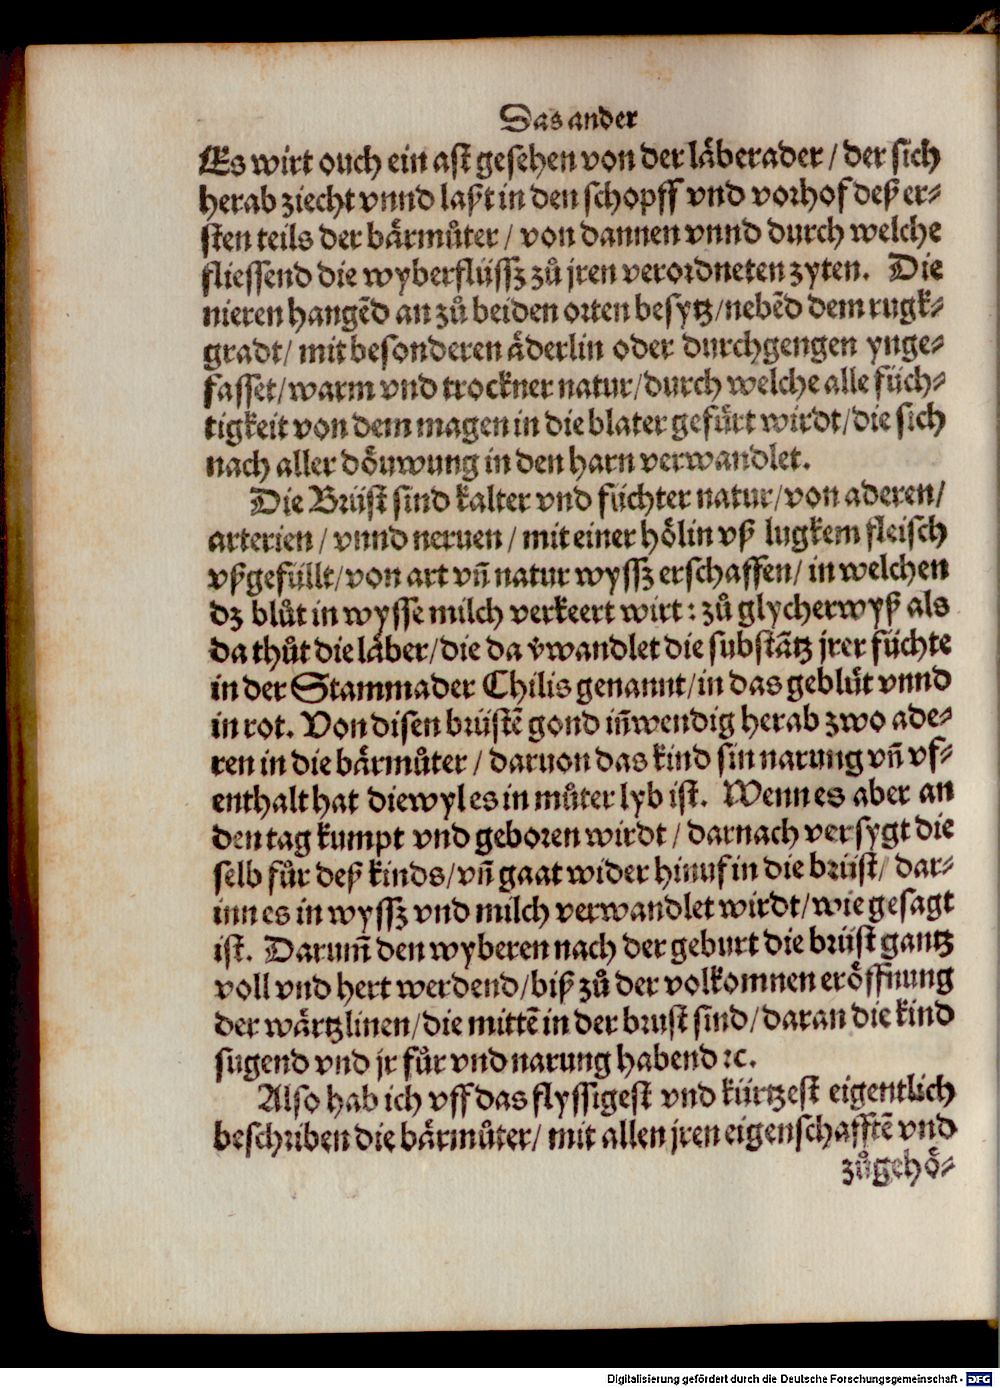 Das ander
Es wirt ouch ein ast gesehen von der läberader / der sich
herab ziecht vnnd laßt in den schopff vnd vorhof deß er-
sten teils der bärmůter / von dannen vnnd durch welche
fliessend die wyberflüssz zů jren verordneten zyten. Die
nieren hangẽd an zů beiden orten besytz / nebẽd dem rugk-
gradt / mit besonderen äderlin oder durchgengen ynge-
fasset / warm vnd trockner natur / durch welche alle füch-
tigkeit von dem magen in die blater gefürt wirdt / die sich
nach aller döuwung in den harn verwandlet.
Die Brüst sind kalter vnd füchter natur / von aderen /
arterien / vnnd neruen / mit einer hölin vß lugkem fleisch
vßgefüllt / von art vñ natur wyssz erschaffen / in welchen
dz blůt in wysse milch verkeert wirt : zů glycherwyß als
da thůt die läber / die da v̇wandlet die substãtz jrer füchte
in der Stammader Chilis genannt / in das geblüt vnnd
in rot. Von disen brüstẽ gond iñwendig herab zwo ade-
ren in die bärmůter / daruon das kind sin narung vñ vf-
enthalt hat diewyl es in můter lyb ist. Wenn es aber an
den tag kumpt vnd geboren wirdt / darnach versygt die
selb fůr deß kinds / vñ gaat wider hinuf in die brüst / dar-
inn es in wyssz vnd milch verwandlet wirdt / wie gesagt
ist. Darum̃ den wyberen nach der geburt die brüst gantz
voll vnd hert werdend / biß zů der volkomnen eröffnung
der wärtzlinen / die mittẽ in der brust sind / daran die kind
sugend vnd jr fůr vnd narung habend ꝛc.
Also hab ich vff das flyssigest vnd kürtzest eigentlich
beschriben die bärmůter / mit allen jren eigenschafftẽ vnd
zůgehö-
Digitalisierung gefördert durch die Deutsche Forschungsgemeinschaft - DFG